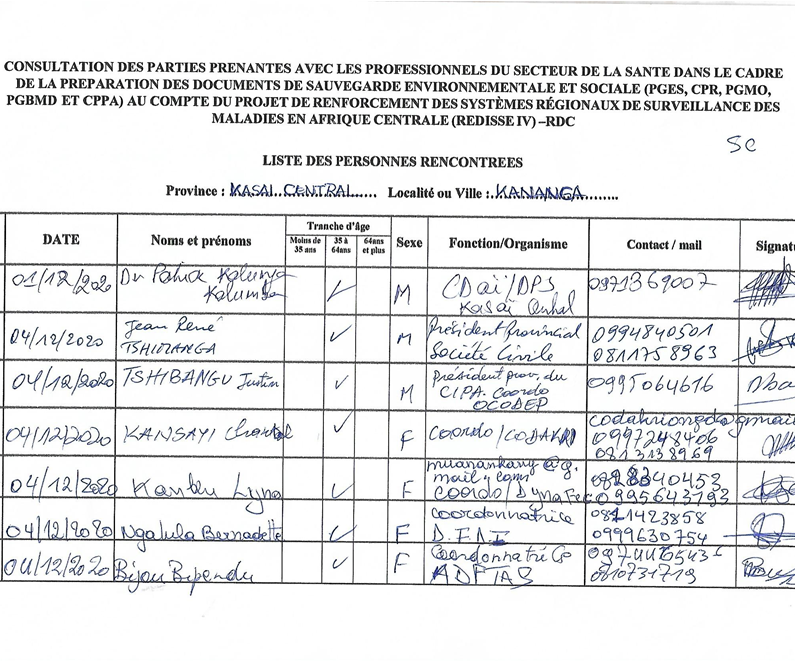 CONSULTATION DES PARTIES PRENANTES AVEC LES PROFESSIONNELS DU SECTEUR DE LA SANTE DANS LE CADRE
DE LA PREPARATION DES DOCUMENTS DE SAUVEGARDE ENVIRONNEMENTALE ET SOCIALE (PGES, CPR, PGMO,
PGBMD ET CPPA) AU COMPTE DU PROJET DE RENFORCEMENT DES SYSTÈMES RÉGIONAUX DE SURVEILLANCE DES
MALADIES EN AFRIQUE CENTRALE (REDISSE IV) –RDC
SC
LISTE DES PERSONNES RENCONTREES
Province : KASAI CENTRAL...... Localité ou Ville :.KANANGA........
DATE Noms et prénoms Tranche d'âge Sexe Fonction/Organisme Contact / mail Signat
Moins de 35 ans 35 à 64ans 64ans et plus
01/12/2020 Dr Kalunga Kalumba M CDaï/DPS Kasaï 0971369007
04/12/2020 Jean René TSHIMANGA M Président Provincial Société Civile 0994840501 0811758963
04/12/2020 TSHIBANGU Justin M Président prov. du CIPA. Coordo OCODEP 0995064616
04/12/2020 KANSAYI Chantal F Coordo/CODAKRI 0997248406 0813138969
04/12/2020 F mail.com Coordo/DynaFec 0995643193
04/12/2020 Ngalula Bernadette F coordonnatrice 0821423858 0999630754
04/12/2020 Bijou Bipendu F Coordonnatrice ADFIAS 0810731719